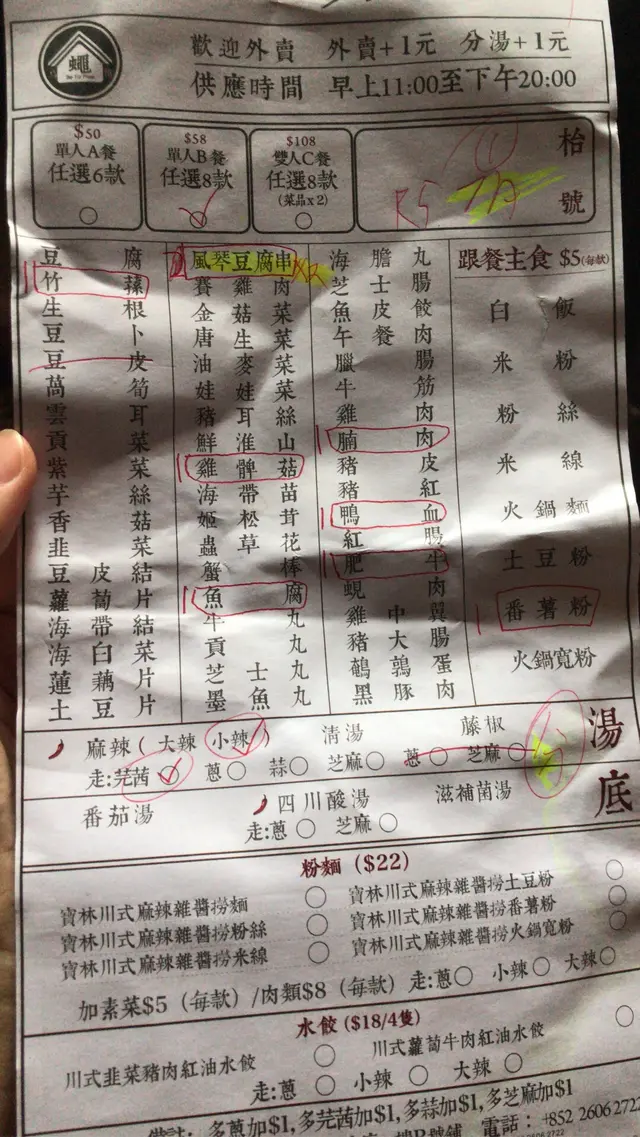 蠅
歡迎外賣 外賣+1元 分湯+1元
供應時間 早上11:00至下午20:00
$50
單人A餐
任選6款
$58
單人B餐
任選8款
$108
雙人C餐
任選8款
(菜品x2)
枱號
豆腐
竹蓀
生根
豆卜
豆皮
萵筍
雲耳
貢菜
紫菜
芋絲
香菇
韭菜
豆皮結
蘿蔔片
海帶結
海白菜
蓮藕片
土豆片
風琴豆腐串
賽雞肉
金菇菜
唐生菜
油麥菜
娃娃菜
豬耳絲
鮮淮山
雞髀菇
海帶苗
姬松茸
蟲草花
蟹棒
魚腐
牛丸
貢丸
芝士丸
墨魚丸
海膽丸
芝士腸
魚皮餃
午餐肉
臘腸
牛筋
雞肉
腩肉
豬皮
豬紅
鴨血
紅腸
肥牛
蜆肉
雞中翼
豬大腸
鵪鶉蛋
黑豚肉
跟餐主食 $5(每款)
白飯
米粉
粉絲
米線
火鍋麵
土豆粉
番薯粉
火鍋寬粉
湯底
麻辣(大辣 小辣) 清湯 藤椒
走:芫茜 蔥 蒜 芝麻 蔥 芝麻
番茄湯 四川酸湯 滋補菌湯
走:蔥 芝麻
粉麵 ($22)
寶林川式麻辣雜醬撈麵 寶林川式麻辣雜醬撈土豆粉
寶林川式麻辣雜醬撈粉絲 寶林川式麻辣雜醬撈番薯粉
寶林川式麻辣雜醬撈米線 寶林川式麻辣雜醬撈火鍋寬粉
加素菜$5 (每款) /肉類$8 (每款) 走:蔥 小辣 大辣
水餃 ($18/4隻)
川式韭菜豬肉紅油水餃 川式蘿蔔牛肉紅油水餃
走:蔥 小辣 大辣
備註: 多蔥加$1, 多芫茜加$1, 多蒜加$1, 多芝麻加$1
電話: +852 2606 2722